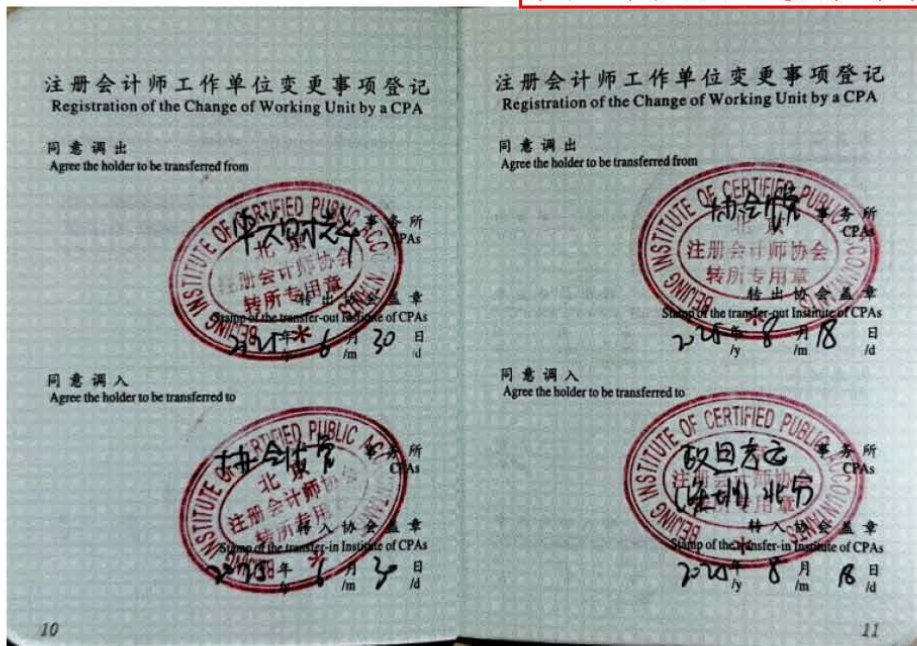 注册会计师工作单位变更事项登记
Registration of the Change of Working Unit by a CPA
同意调出
Agree the holder to be transferred from
BEIJING INSTITUTE OF CERTIFIED PUBLIC ACCOUNTANTS
事务所
CPAs
北京
注册会计师协会
转所专用章
转出协会盖章
Stamp of the transfer-out Institute of CPAs
年 6 月 30 日
/y /m /d
同意调入
Agree the holder to be transferred to
BEIJING INSTITUTE OF CERTIFIED PUBLIC ACCOUNTANTS
事务所
CPAs
北京
注册会计师协会
转所专用
转入协会盖章
Stamp of the transfer-in Institute of CPAs
2025 年 6 月 30 日
/y /m /d
10
注册会计师工作单位变更事项登记
Registration of the Change of Working Unit by a CPA
同意调出
Agree the holder to be transferred from
BEIJING INSTITUTE OF CERTIFIED PUBLIC ACCOUNTANTS
事务所
CPAs
北京
注册会计师协会
转所专用章
转出协会盖章
Stamp of the transfer-out Institute of CPAs
2025 年 8 月 18 日
/y /m /d
同意调入
Agree the holder to be transferred to
BEIJING INSTITUTE OF CERTIFIED PUBLIC ACCOUNTANTS
事务所
CPAs
(深圳) 北分
注册会计师协会
转所专用章
转入协会盖章
Stamp of the transfer-in Institute of CPAs
2025 年 8 月 18 日
/y /m /d
11